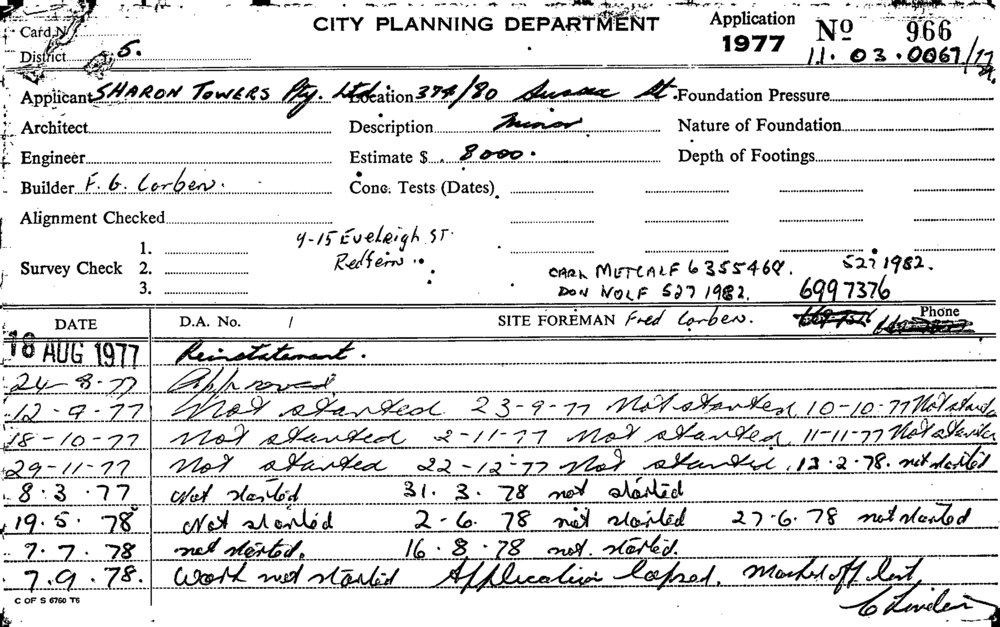 CITY PLANNING DEPARTMENT Application 1977 Nº 966
Card N
District 5. 11.03.0067/77
Applicant SHARON TOWERS Pty. Ltd. Location 374/80 Sussex St. Foundation Pressure
Architect Description Minor Nature of Foundation
Engineer Estimate $ 8000. Depth of Footings
Builder F. G. Corben. Conc. Tests (Dates)
Alignment Checked
Survey Check 1. 2. 3.
9-15 Eveleigh ST.
Redfern.
CARL METCALF 6355469. 527 1982.
DON NOLF 527 1982. 6997376
DATE D.A. No. / SITE FOREMAN Fred Corben. Phone
18 AUG 1977 Reinstatement.
24-8-77 Approved
12-9-77 Not started 23-9-77 Not started 10-10-77 Not starte
18-10-77 Not started 2-11-77 Not started 11-11-77 Not started
29-11-77 Not started 22-12-77 Not started. 13.2.78. not started
8.3.77 Not started 31.3.78 not started
19.5.78 Not started 2-6.78 not started 27-6.78 not started
7.7.78 not started. 16.8.78 not started.
7.9.78. Work not started Application lapsed. Marked off list
C OF S 6760 T6